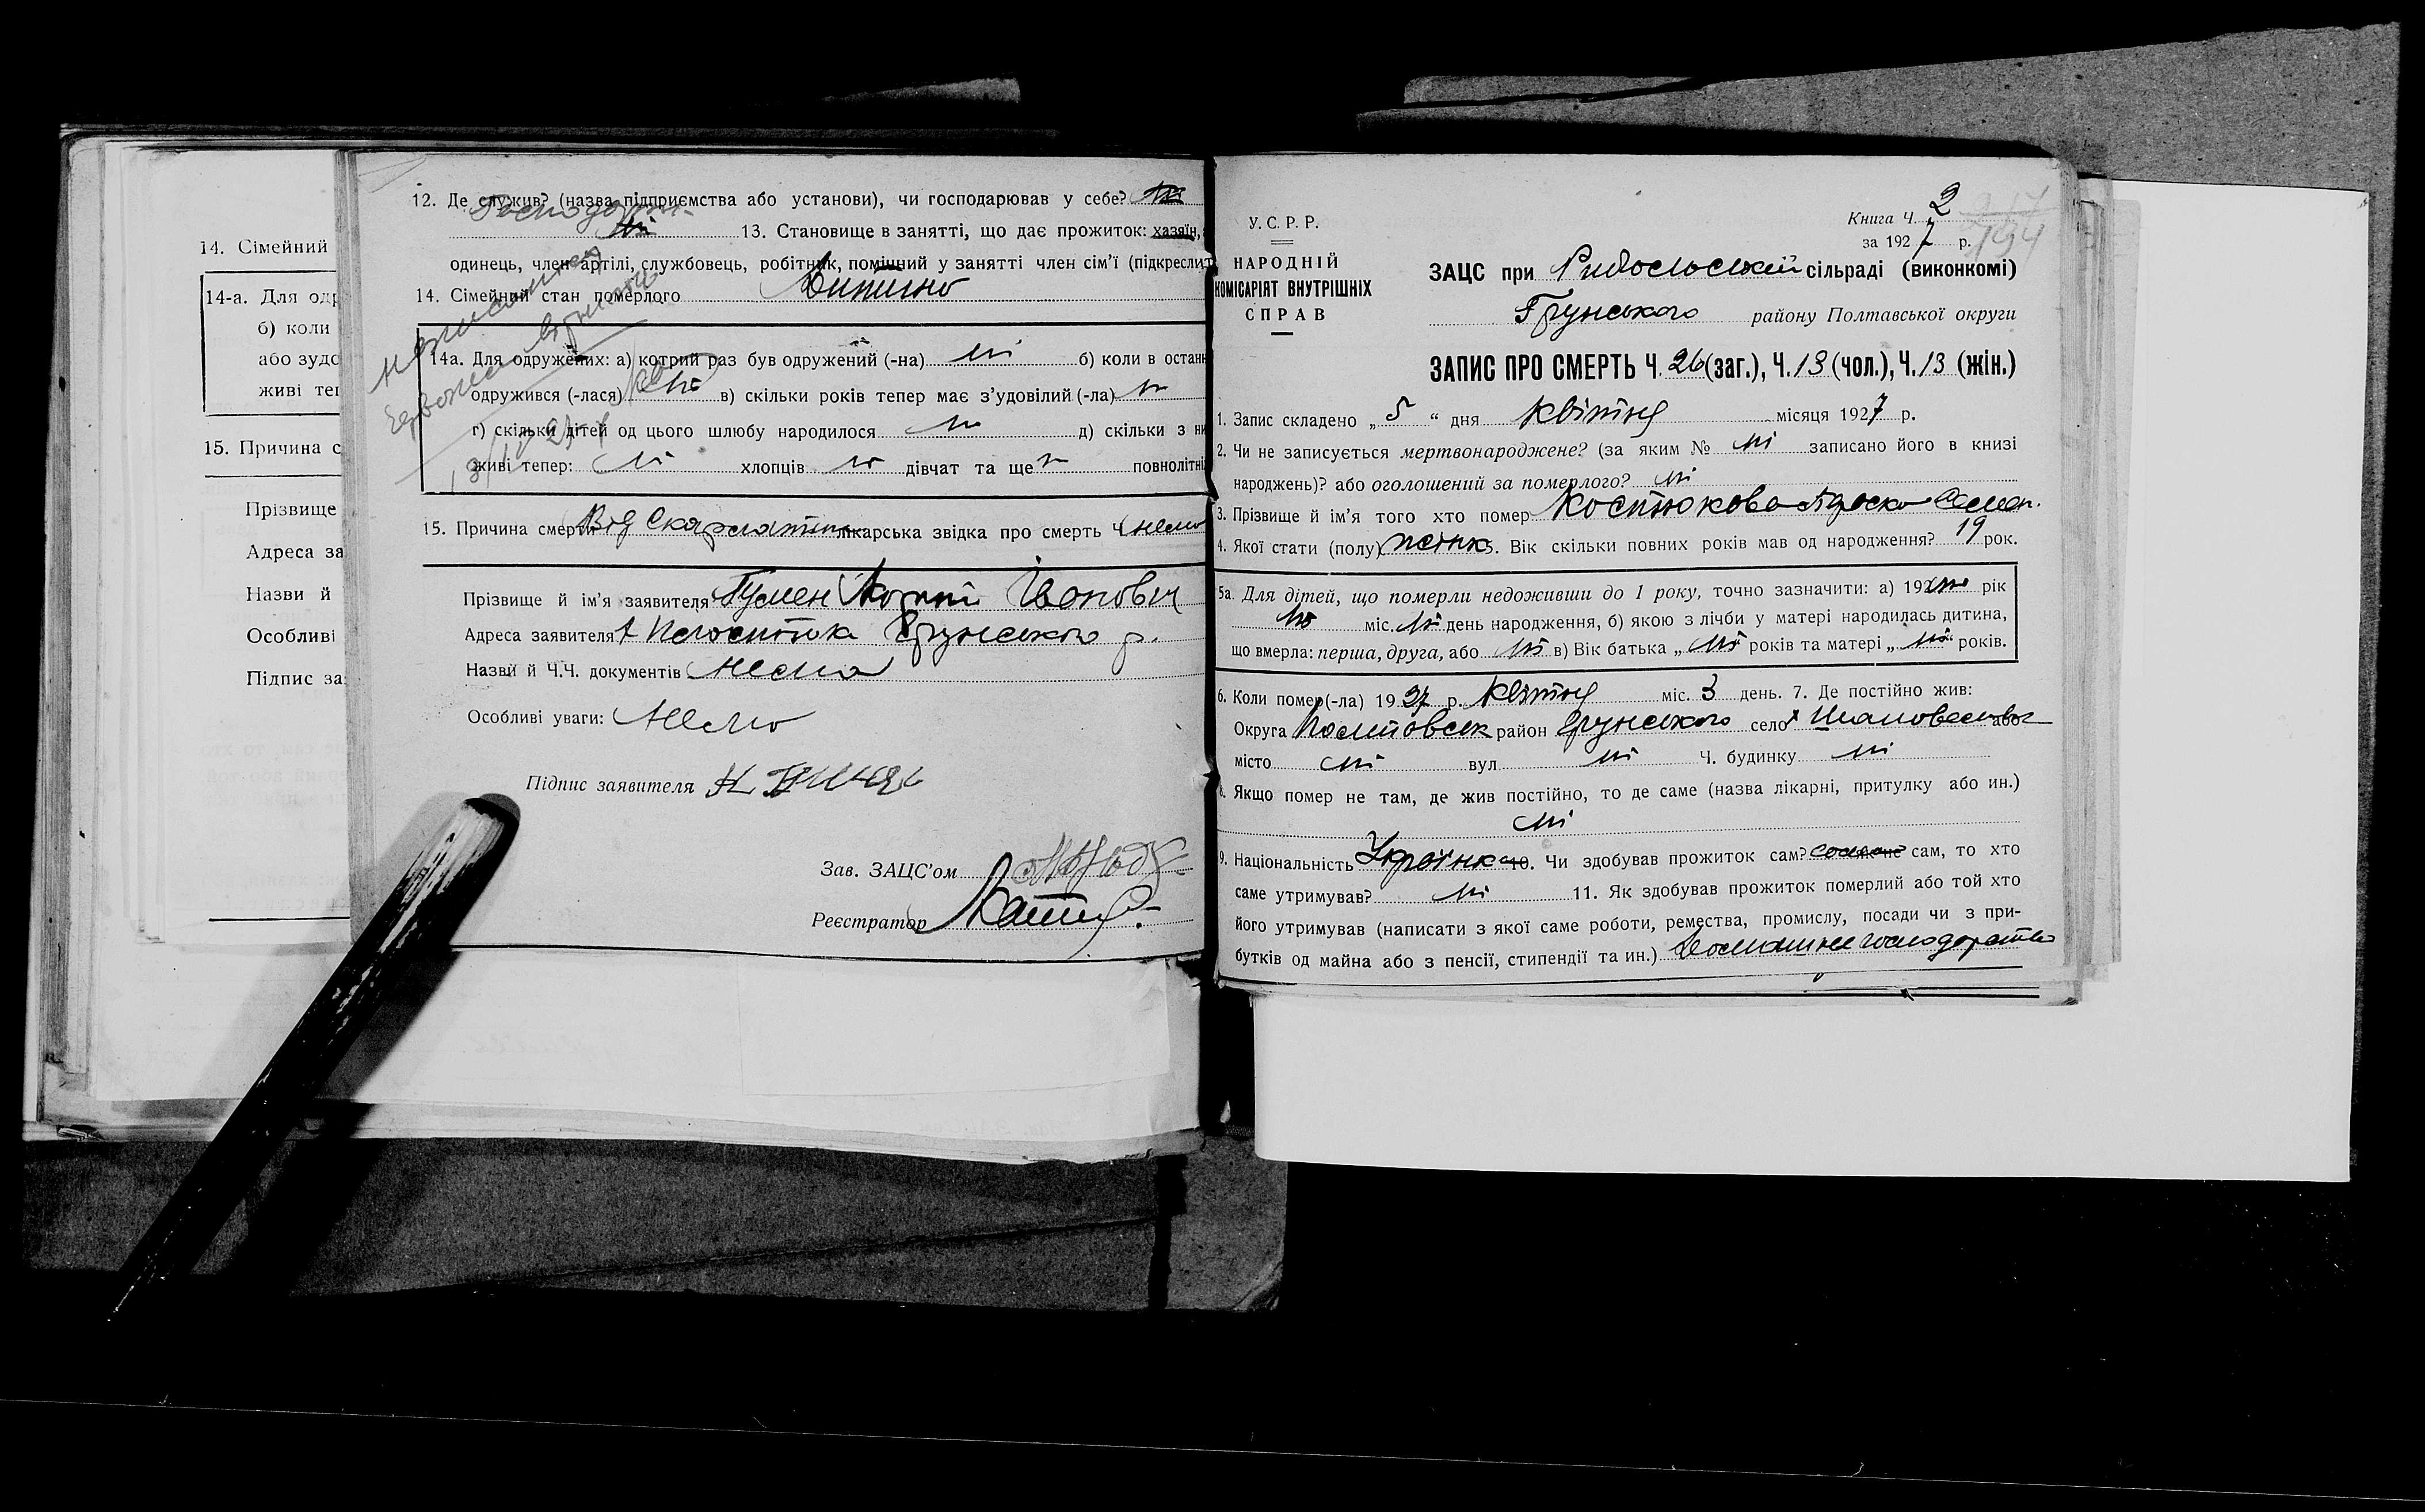 14. Сімейний
14-а. Для одр
б) коли
або зудо
живі теп
15. Причина с
Прізвище
Адреса за
Назви й
Особливі
Підпис за
12. Де служив? (назва підприємства або установи), чи господарював у себе?
13. Становище в занятті, що дає прожиток: хазяїн,
одинець, член артілі, службовець, робітник, помішний у занятті член сім’ї (підкреслит
14. Сімейний стан померлого
14а. Для одружених: а) котрий раз був одружений (-на) ні б) коли в останн
одружився (-лася) в) скільки років тепер має з’удовілий (-ла)
г) скільки дітей од цього шлюбу народилося ні д) скільки з ни
живі тепер: ні хлопців ні дівчат та ще повнолітні
15. Причина смерти Від Скарлатини лікарська звідка про смерть Ч. нема
Прізвище й ім’я заявителя Іванович
Адреса заявителя Грунського р.
Назви й Ч.Ч. документів Нема
Особливі уваги: Нема
Підпис заявителя
Зав. ЗАЦС’ом
Реєстратор
У. С. Р. Р.
НАРОДНІЙ
КОМІСАРІЯТ ВНУТРІШНІХ
СПРАВ
Книга Ч. 2
за 1927 р.
ЗАЦС при сільраді (виконкомі)
Грунського району Полтавської округи
ЗАПИС ПРО СМЕРТЬ Ч. 26 (заг.), Ч. 13 (чол.), Ч. 13 (жін.)
1. Запис складено „ 5 “ дня квітня місяця 1927 р.
2. Чи не записується мертвонароджене? (за яким № ні записано його в книзі
народжень)? або оголошений за померлого? ні
3. Прізвище й ім’я того хто помер Костюкова Параска Семен.
4. Якої стати (полу) жінк 5. Вік скільки повних років мав од народження? 19 рок.
5а. Для дітей, що померли недоживши до 1 року, точно зазначити: а) 192 рік
ні міс. ні день народження, б) якою з лічби у матері народилась дитина,
що вмерла: перша, друга, або ні в) Вік батька „ ні “ років та матері „ ні “ років.
6. Коли помер(-ла) 1927 р. квітня міс. 3 день. 7. Де постійно жив:
Округа Полтавськ район Грунського село або
місто ні вул ні Ч. будинку ні
8. Якщо помер не там, де жив постійно, то де саме (назва лікарні, притулку або ин.)
ні
9. Національність Українка 10. Чи здобував прожиток сам? сам, то хто
саме утримував? ні 11. Як здобував прожиток померлий або той хто
його утримував (написати з якої саме роботи, ремества, промислу, посади чи з при-
бутків од майна або з пенсії, стипендії та ин.)